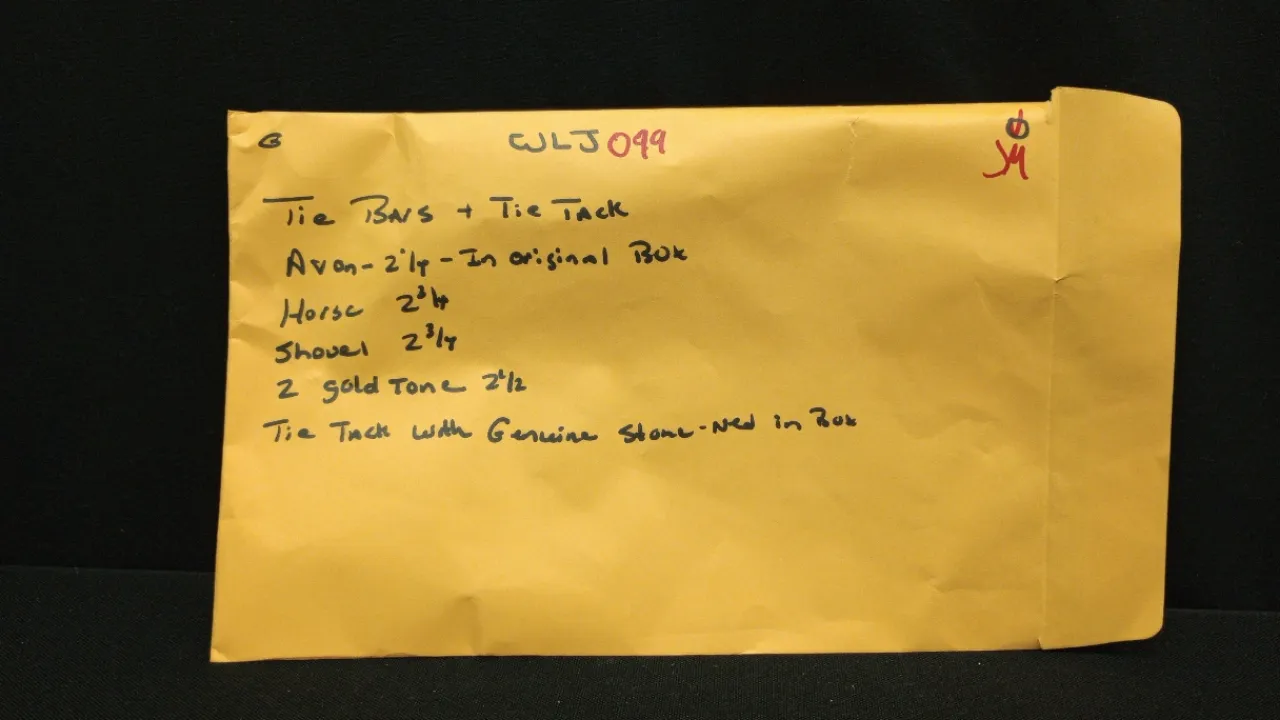 G WLJ099
JM
Tie Bars + Tie Tack
Avon - 2 1/4 - In original Box
Horse 2 3/4
Shovel 2 3/4
2 gold Tone 2 1/2
Tie Tack with Genuine Stone - in Box